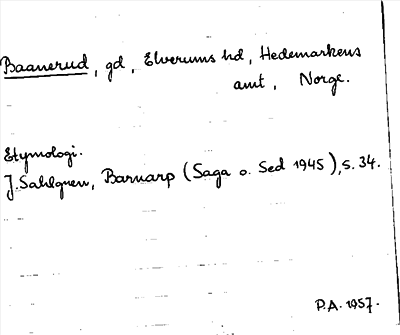 Baanerud, gd, Elverums hd, Hedemarkens
amt, Norge.
Etymologi.
J. Sahlgren, Barnarp (Saga o. Sed 1945), s. 34.
P.A. 1957.